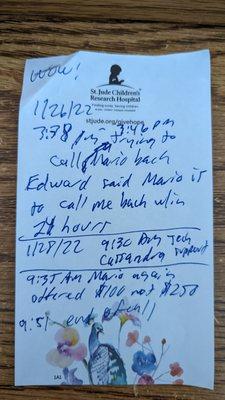 WOW!
St. Jude Children's
Research Hospital
Finding cures. Saving children.
stjude.org/givehope
1/26/22
3:38 pm - 3:46 pm
trying to
call Mario back
Edward said Mario is
to call me back w/in
24 hours
1/28/22 9:30 Am Tech
Cassandra support
9:35 AM Mario again
offered $100 not $250
9:51 - end of call
1A1